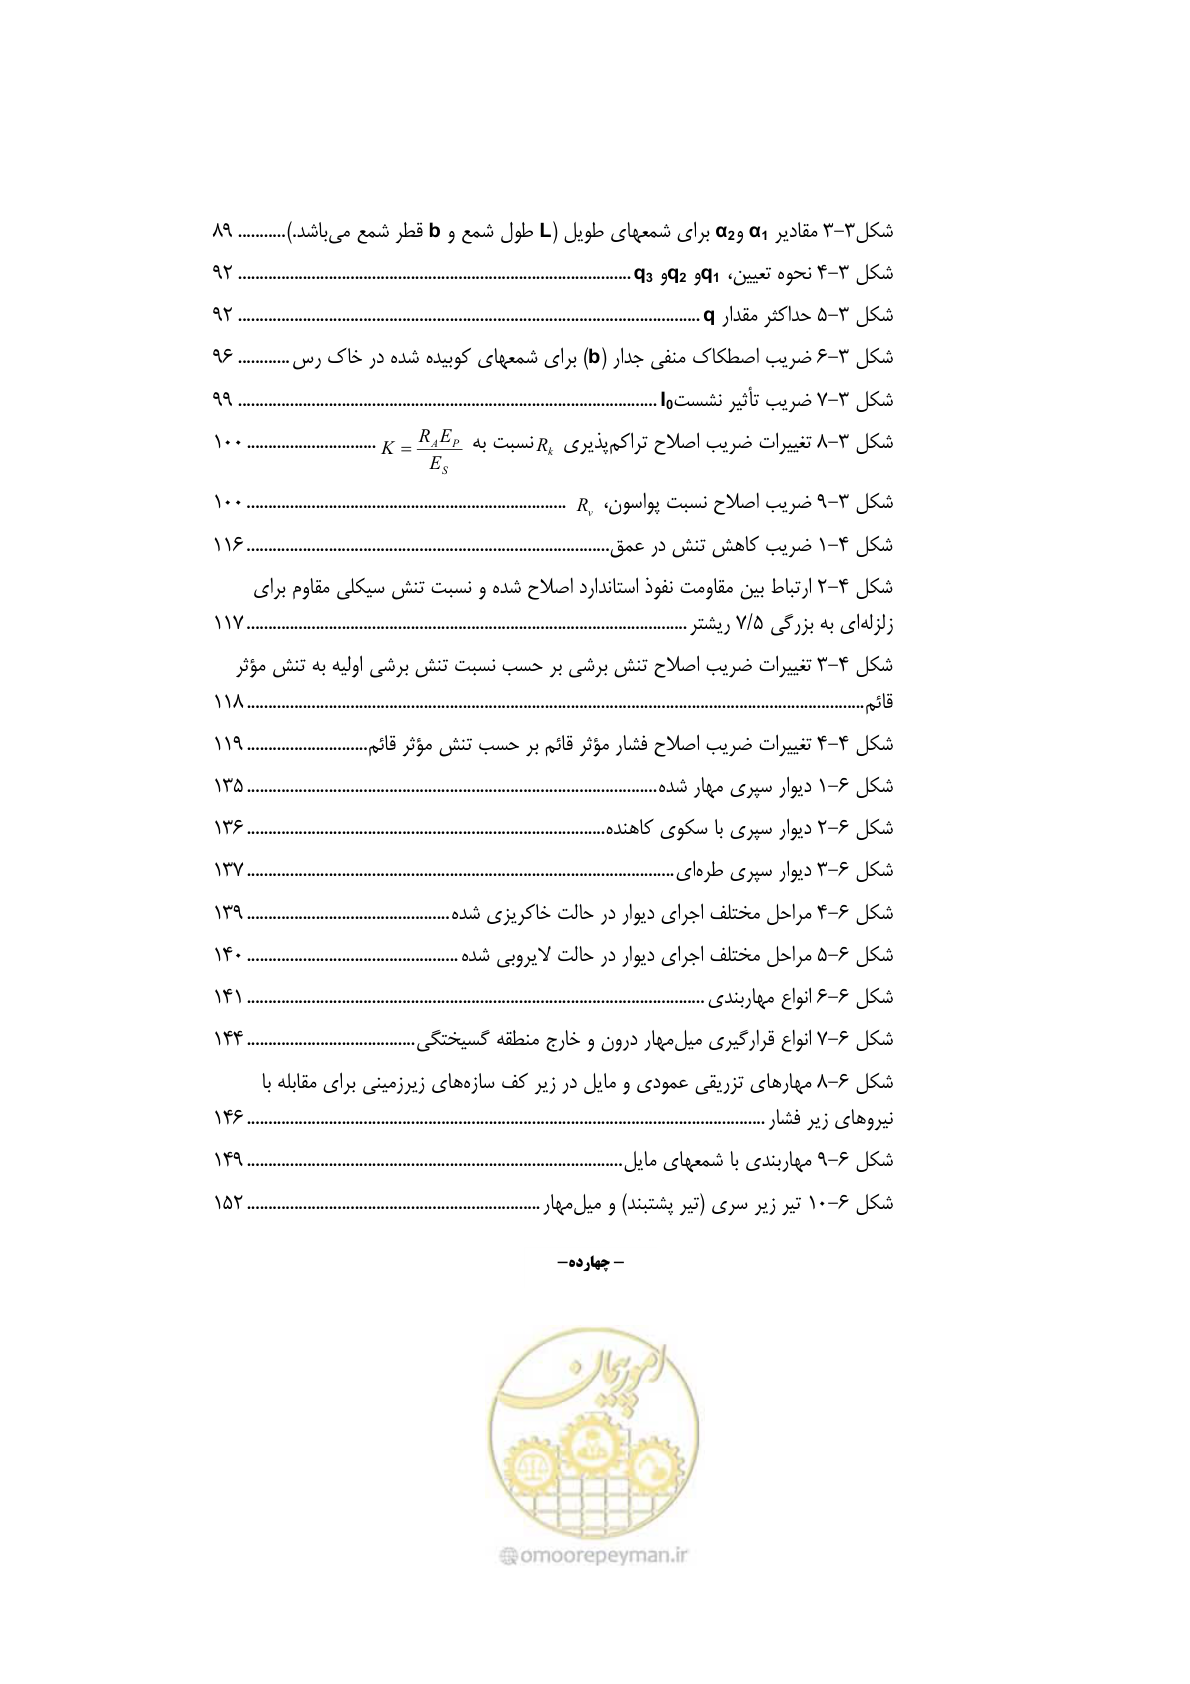 شکل۳-۳ مقادیر α₁ وα₂ برای شمعهای طویل (L طول شمع و b قطر شمع می‌باشد.)........... ۸۹
شکل ۳-۴ نحوه تعیین، q₁و q₂و q₃ ........... ۹۲
شکل ۳-۵ حداکثر مقدار q ........... ۹۲
شکل ۳-۶ ضریب اصطکاک منفی جدار (b) برای شمعهای کوبیده شده در خاک رس ............ ۹۶
شکل ۳-۷ ضریب تأثیر نشستI₀ ........... ۹۹
شکل ۳-۸ تغییرات ضریب اصلاح تراکم‌پذیری R_k نسبت به K = R_A E_P / E_S ........... ۱۰۰
شکل ۳-۹ ضریب اصلاح نسبت پواسون، R_v ........... ۱۰۰
شکل ۴-۱ ضریب کاهش تنش در عمق........... ۱۱۶
شکل ۴-۲ ارتباط بین مقاومت نفوذ استاندارد اصلاح شده و نسبت تنش سیکلی مقاوم برای
زلزله‌ای به بزرگی ۷/۵ ریشتر ........... ۱۱۷
شکل ۴-۳ تغییرات ضریب اصلاح تنش برشی بر حسب نسبت تنش برشی اولیه به تنش مؤثر
قائم........... ۱۱۸
شکل ۴-۴ تغییرات ضریب اصلاح فشار مؤثر قائم بر حسب تنش مؤثر قائم........... ۱۱۹
شکل ۶-۱ دیوار سپری مهار شده........... ۱۳۵
شکل ۶-۲ دیوار سپری با سکوی کاهنده........... ۱۳۶
شکل ۶-۳ دیوار سپری طره‌ای........... ۱۳۷
شکل ۶-۴ مراحل مختلف اجرای دیوار در حالت خاکریزی شده........... ۱۳۹
شکل ۶-۵ مراحل مختلف اجرای دیوار در حالت لایروبی شده ........... ۱۴۰
شکل ۶-۶ انواع مهاربندی ........... ۱۴۱
شکل ۶-۷ انواع قرارگیری میل‌مهار درون و خارج منطقه گسیختگی........... ۱۴۴
شکل ۶-۸ مهارهای تزریقی عمودی و مایل در زیر کف سازه‌های زیرزمینی برای مقابله با
نیروهای زیر فشار ........... ۱۴۶
شکل ۶-۹ مهاربندی با شمعهای مایل........... ۱۴۹
شکل ۶-۱۰ تیر زیر سری (تیر پشتبند) و میل‌مهار ........... ۱۵۲
- چهارده-
امور پیمان
@omoorepeyman.ir